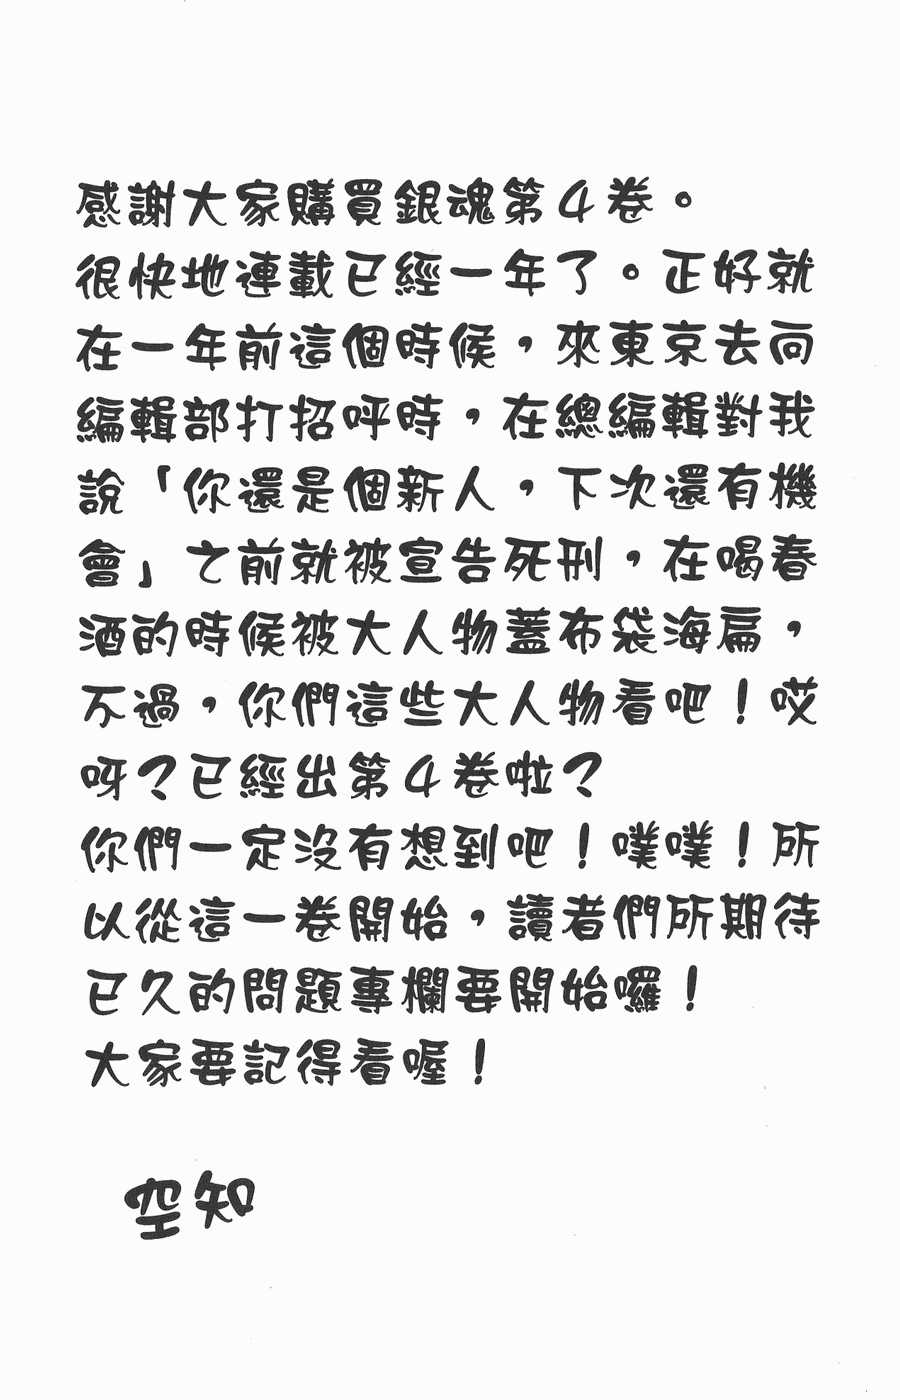 感謝大家購買銀魂第4卷。
很快地連載已經一年了。正好就
在一年前這個時候，來東京去向
編輯部打招呼時，在總編輯對我
說「你還是個新人，下次還有機
會」之前就被宣告死刑，在喝春
酒的時候被大人物蓋布袋海扁，
不過，你們這些大人物看吧！哎
呀？已經出第4卷啦？
你們一定沒有想到吧！噗噗！所
以從這一卷開始，讀者們所期待
已久的問題專欄要開始囉！
大家要記得看喔！
空知